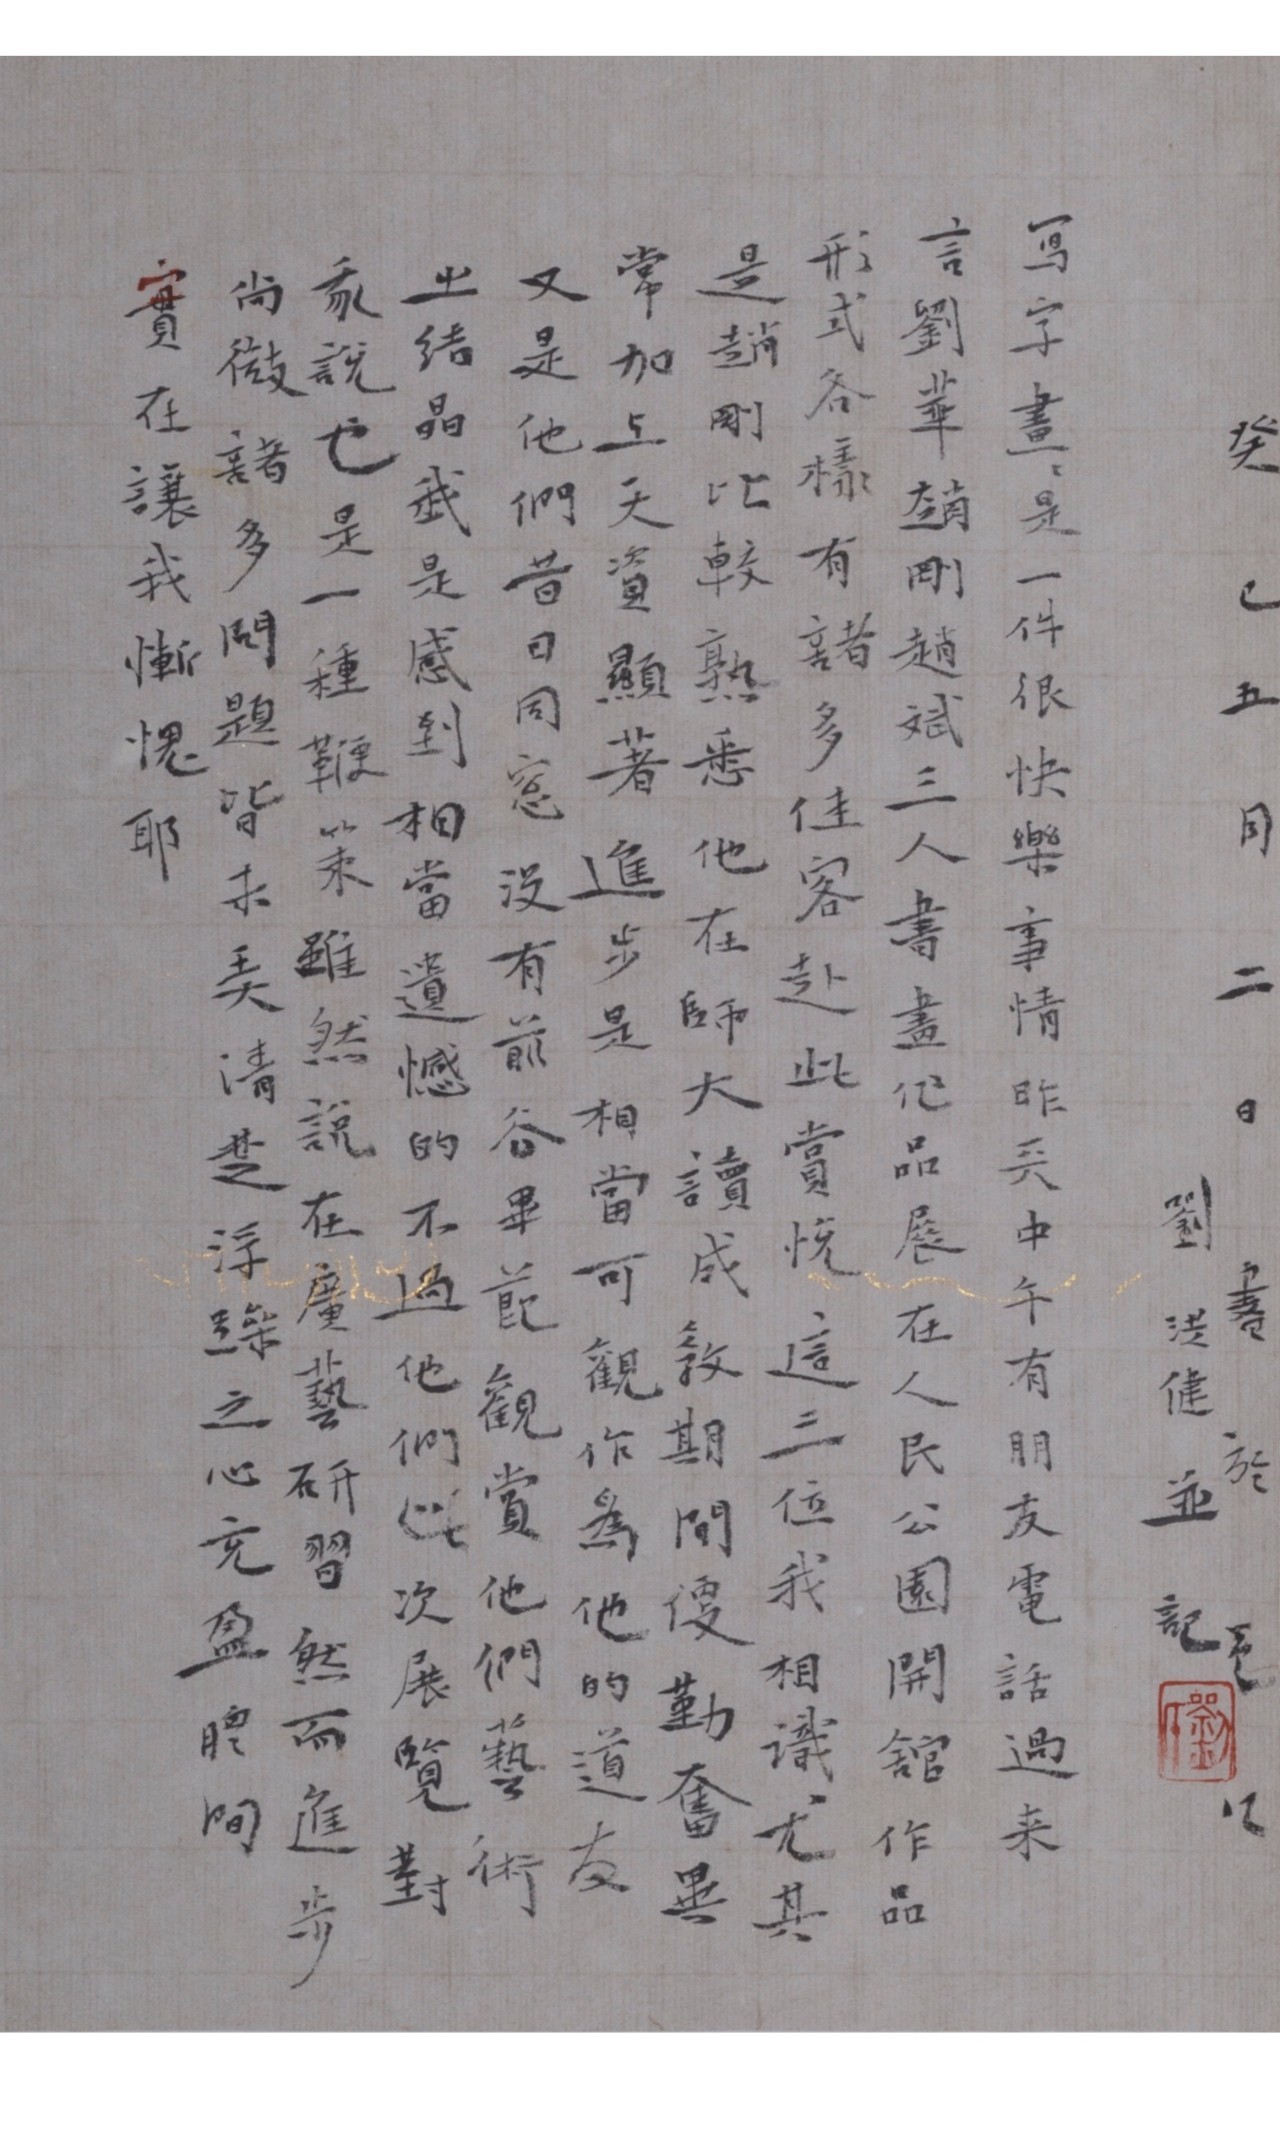 癸巳五月二日書於
劉洪健並記
寫字畫畫是一件很快樂事情昨天中午有朋友電話過来
言劉華趙剛趙斌三人書畫作品展在人民公園開舘作品
形式各樣有諸多佳客赴此賞悅這三位我相識尤其
是趙剛比較熟悉他在師大讀成教期間便勤奮異
常加上天資顯著進步是相當可觀作為他的道友
又是他們昔日同窓没有前谷畢節觀賞他們藝術
之結晶我是感到相當遺憾的不過他們此次展覽對
我說也是一種鞭策雖然說在廣藝研習然而進步
尚微諸多問題皆未弄清楚浮躁之心充盈體間
實在讓我慚愧耶
劉